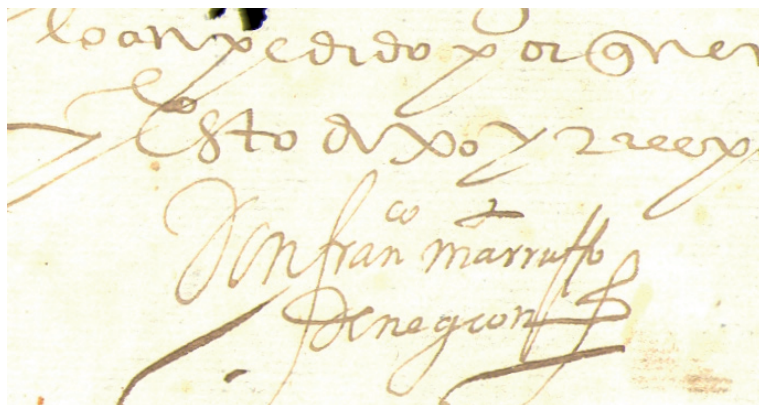 lo an pedido por q
Esto dixo y rresp
Don fran^co marruffo
de negron